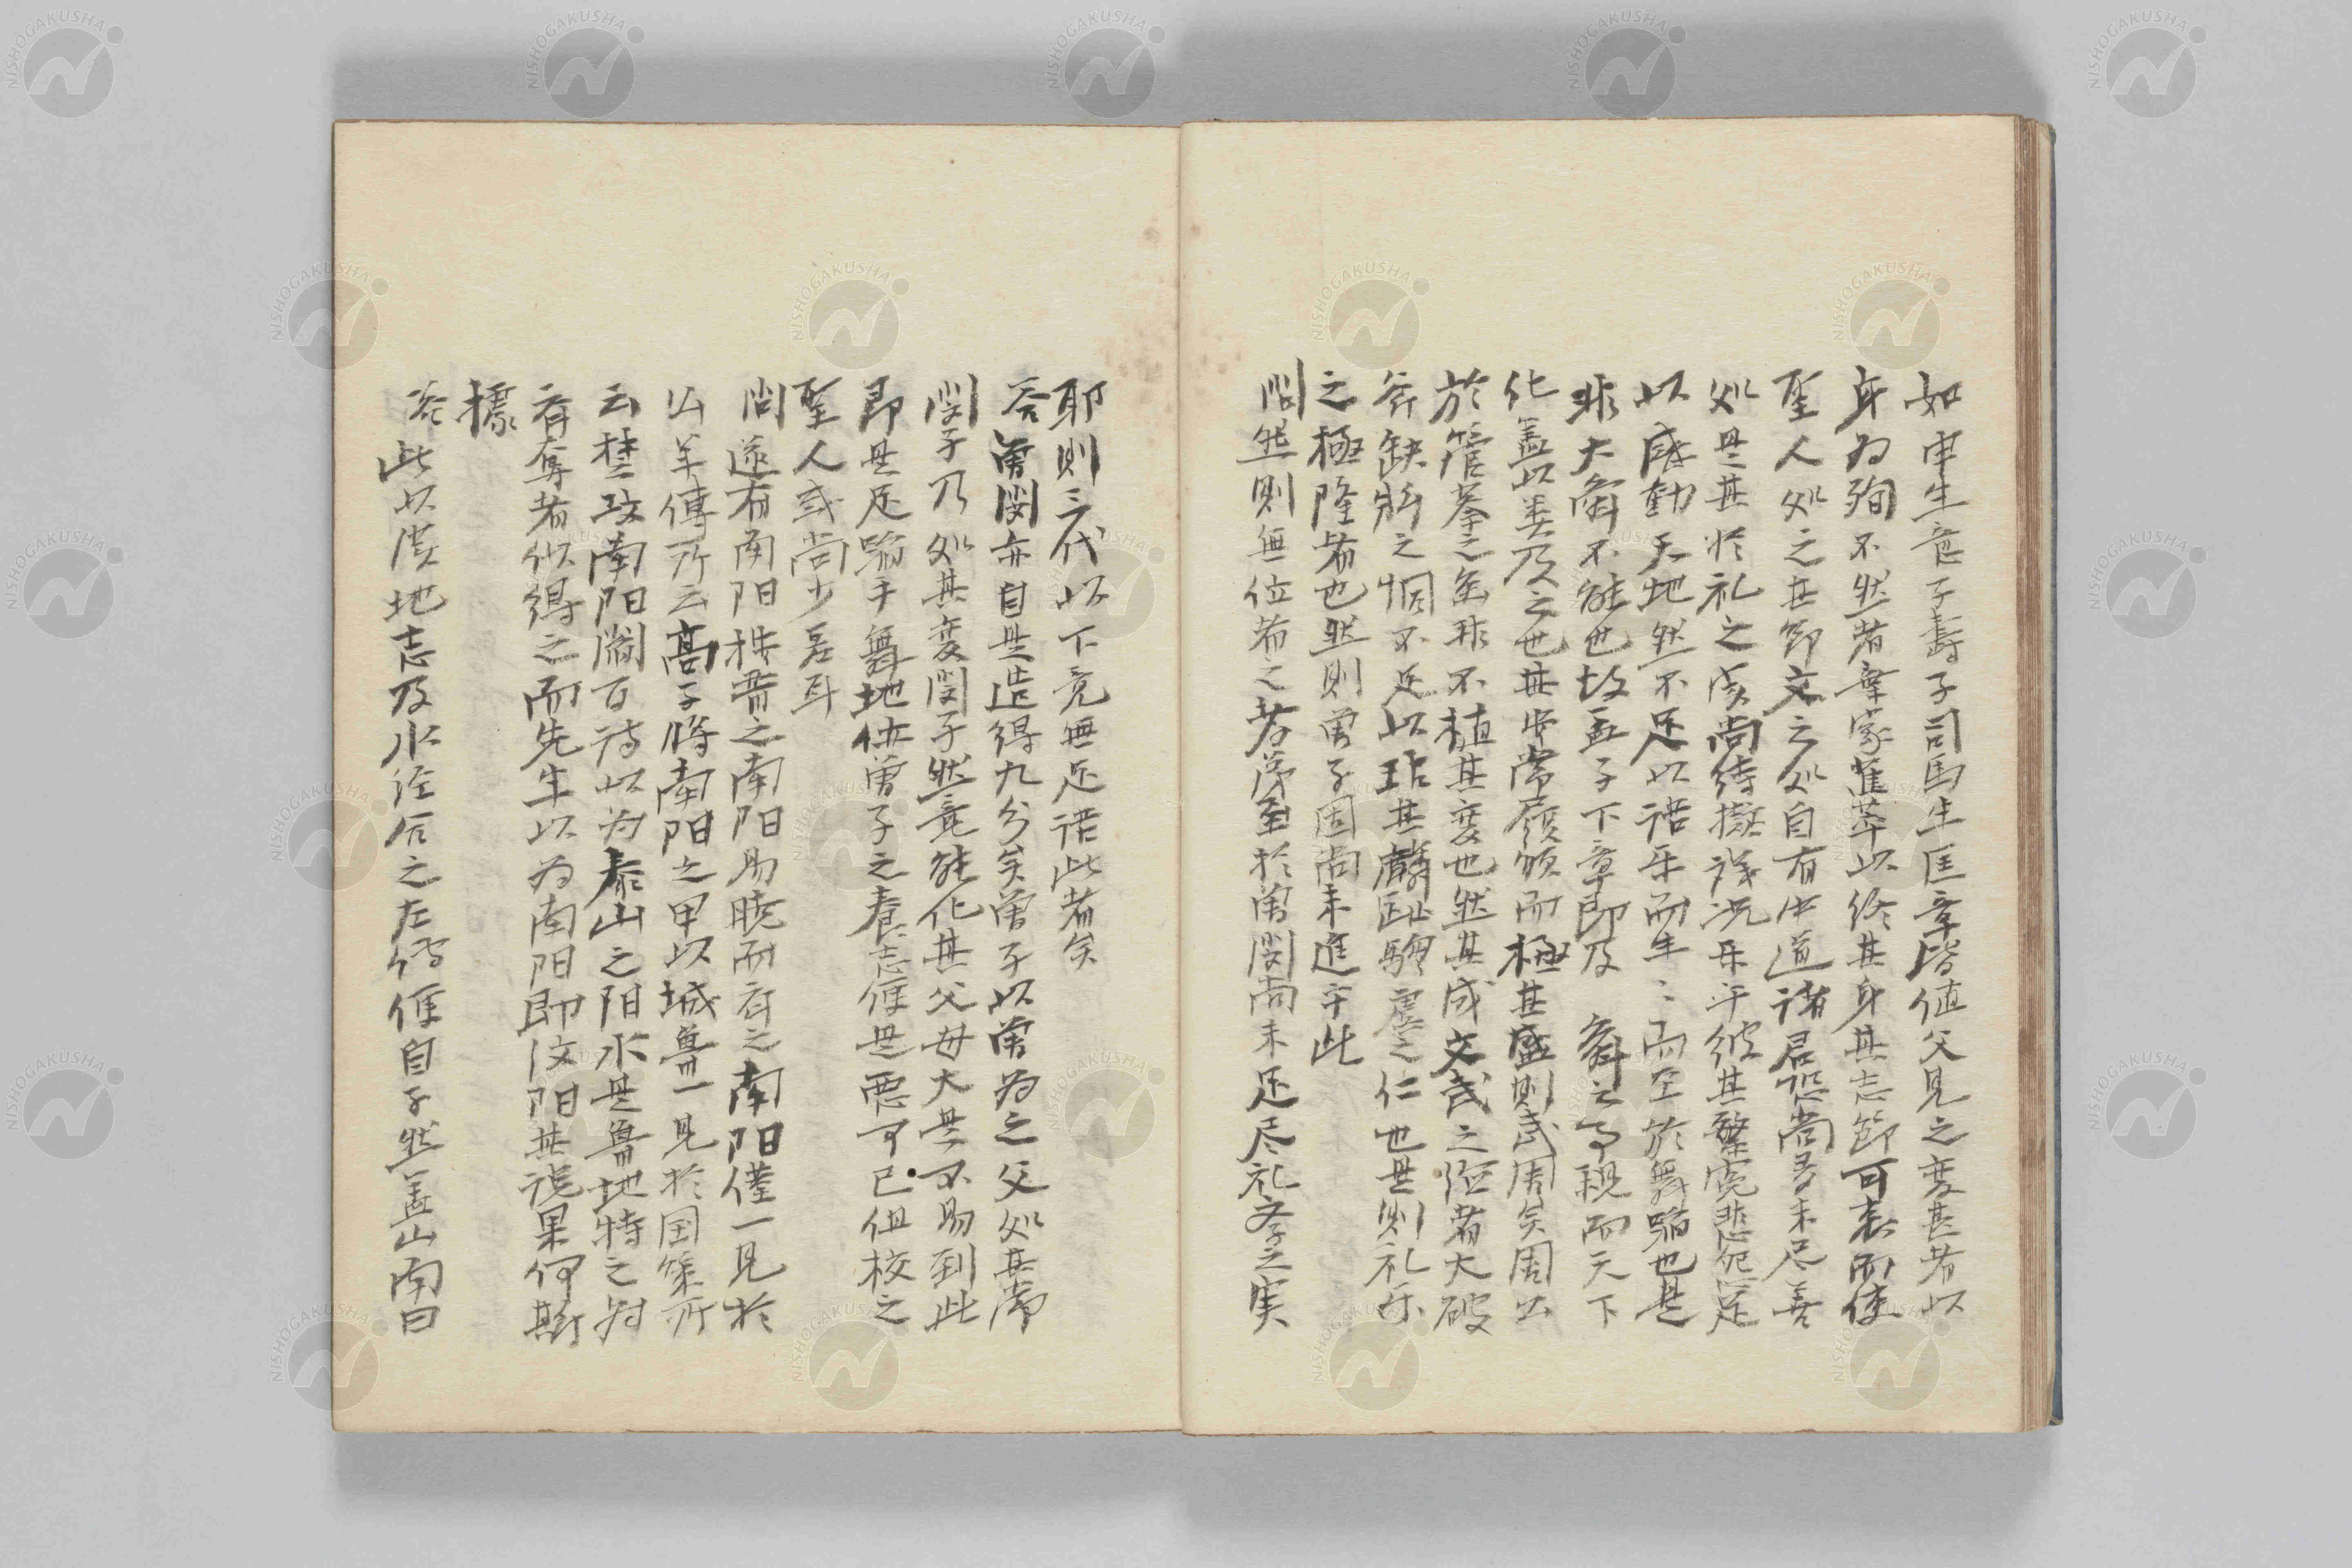 如申生急子壽子司馬牛匡章皆值父兄之変甚者以
身为殉不然者棄家蕉萃以終其身其志節可表而使
聖人処之其節文之処自有中道諸君恐尚多未尽善
処是其於礼之実尚待擬議況乐乎彼其繁寃悲怨足
以感動天地然不足以語乐而生々而至於舞蹈也是
非大舜不能也故孟子下章即及 舜之事親而天下
化蓋以类及之也其安常履順而極其盛則武周矣周公
於管蔡之至非不植其変也然其成文武之徳者大破
斧缺斨之恫不足以玷其麟趾騶虞之仁也是則礼乐
之極隆者也然則曽子固尚未進乎此
問然則無位者之孝弟至於曽閔尚未足尽礼孝之実
耶則三代以下竟無足語此者矣
答曽閔亦自是造得九分矣曽子以曽为之父処其常
閔子乃処其変閔子然竟能化其父母大是不易到此
即是足蹈手舞地位曽子之養志便是悪可已但校之
聖人或尚少差耳
問遂有南阳杜晋之南阳易晓而齐之南阳僅一見於
公羊傳所云高子將南阳之甲以城魯一見於国策所
云楚攻南阳閻百诗以为泰山之阳水是魯地特之为
齐奪者似得之而先生以为南阳即汶阳其说果何斯
據
答此以漢地志及水経合之左傳便自了然蓋山南曰